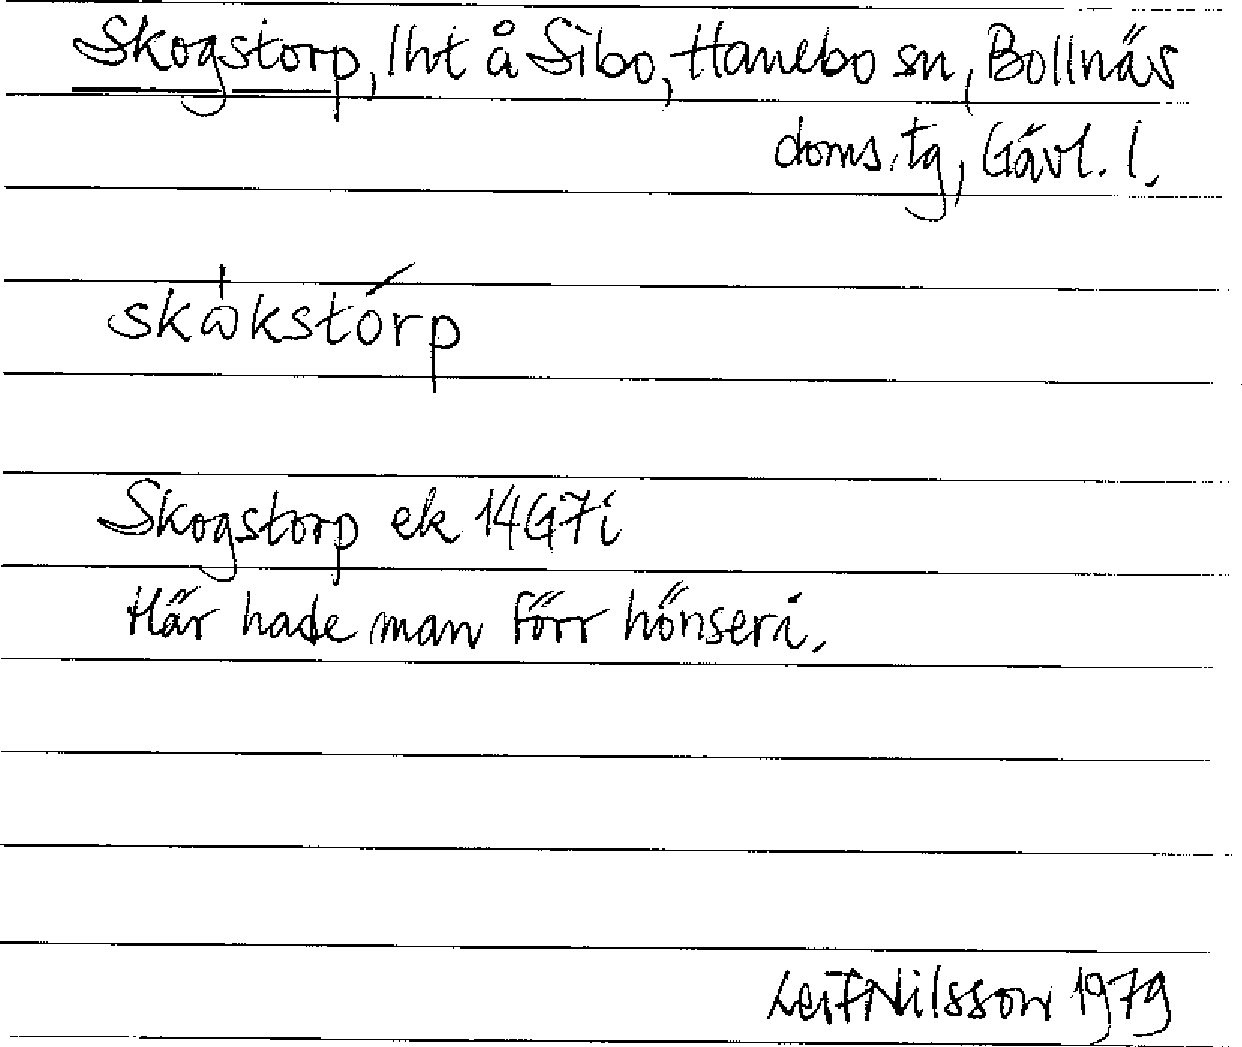 Skogstorp, lht å Sibo, Hanebo sn, Bollnäs
doms. tg, Gävl. l.
skωkstórp
Skogstorp ek 14G7i
Här hade man förr hönseri.
Leif Nilsson 1979